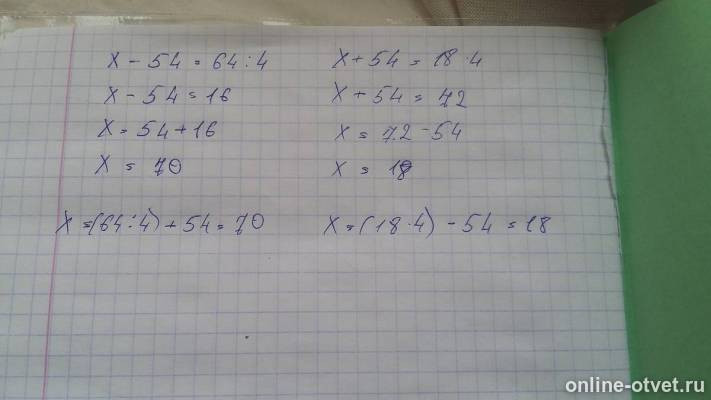 X - 54 = 64 : 4
X - 54 = 16
X = 54 + 16
X = 70
X = (64 : 4) + 54 = 70
X + 54 = 18 · 4
X + 54 = 72
X = 72 - 54
X = 18
X = (18 · 4) - 54 = 18
online-otvet.ru